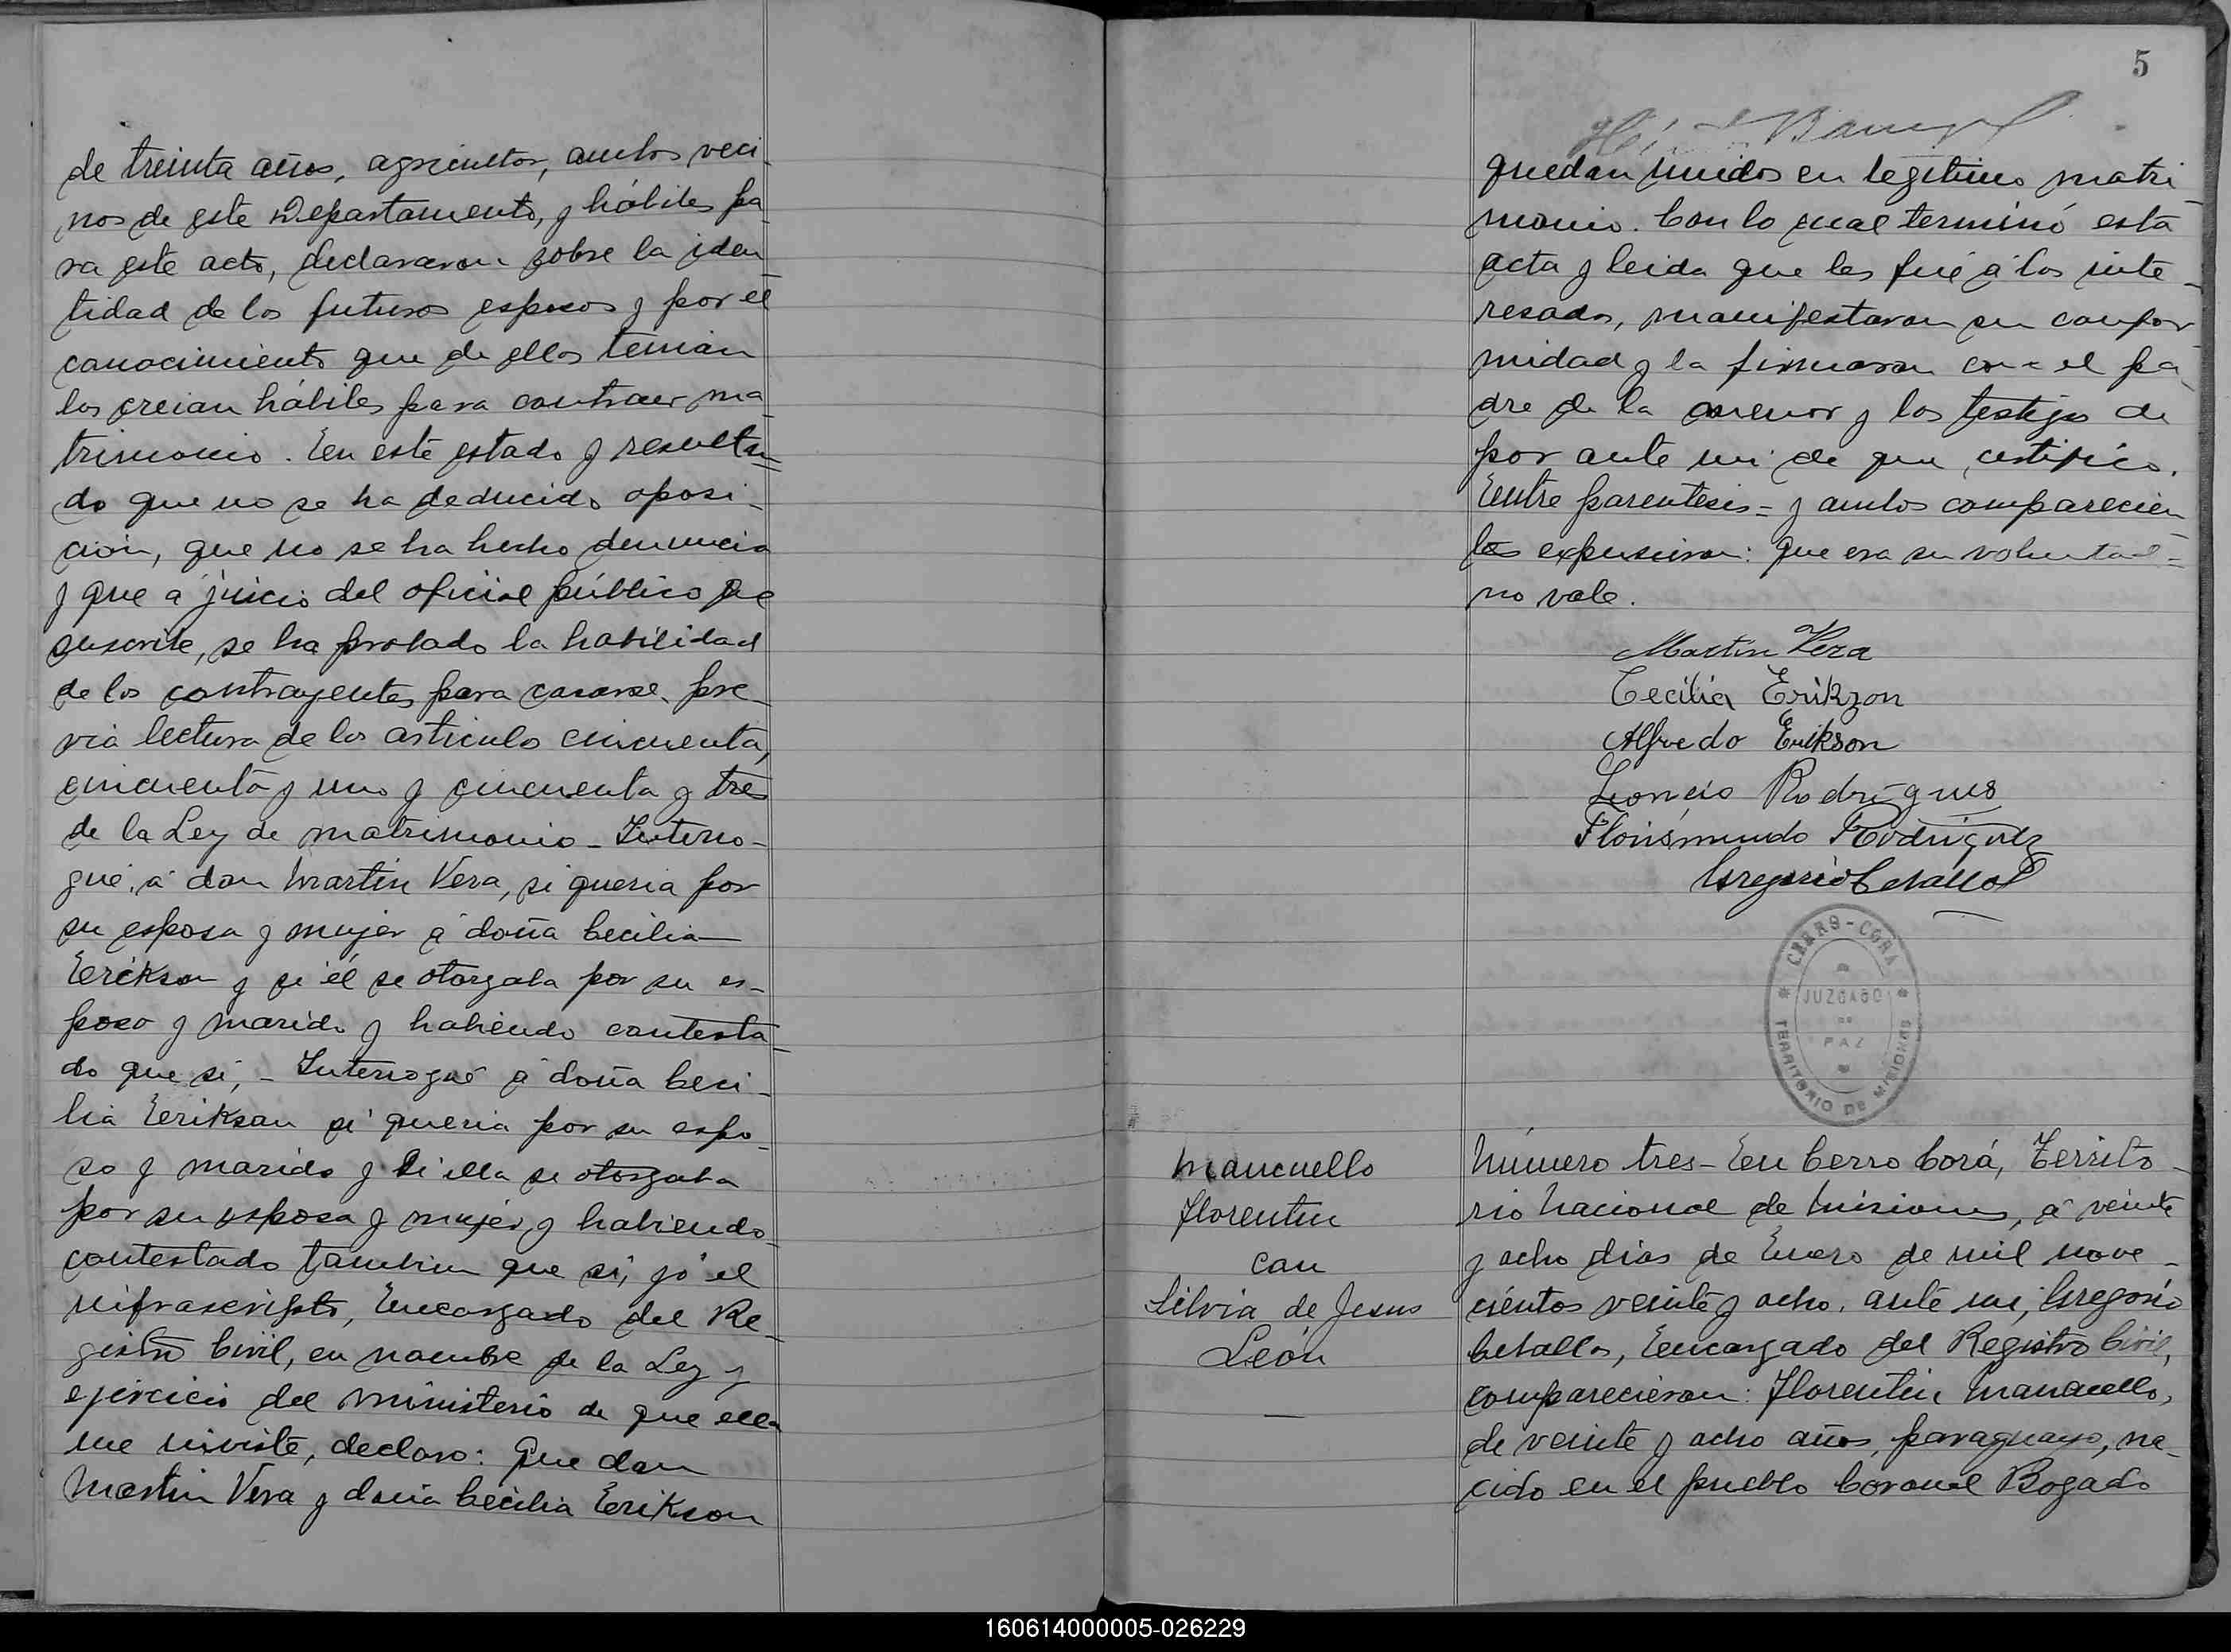 de treinta años, agricultor, ambos veci-
nos de este Departamento, y hábiles pa-
ra este acto, declararon sobre la iden-
tidad de los futuros esposos y por el
conocimiento que de ellos tenian
los creian hábiles para contraer ma-
trimonio. En este estado y resultan=
do que no se ha deducido oposi-
ción, que no se ha hecho denuncia
y que a juicio del oficial público que
suscribe, se ha probado la habilidad
de los contrayentes para casarse, pre-
via lectura de los articulos cincuenta,
cincuenta y uno y cincuenta y tres
de la Ley de matrimonio - Interro-
gué, á don Martin Vera, si queria por
su esposa y mujer á doña Cecilia
Erikson y si él se otorgaba por su es-
poso y marido y habiendo contesta-
do que si, - Interrogué á doña Ceci-
lia Erikson si queria por su espo-
so y marido y si ella se otorgaba
por su esposa y mujer, y habiendo
contestado tambien que si, yo el
infrascripto, Encargado del Re-
gistro Civil, en nombre de la Ley y
ejercicio del ministerio de que ella
me inviste, declaro: Que don
Martin Vera y doña Cecilia Erikson
5
quedan unidos en legitimo matri-
monio. Con lo cual terminó esta
acta y leida que les fué á los inte-
resados, manifestaron su confor-
midad y la firmaron con el pa-
dre de la menor y los testigos de
por ante mi de que certifico.
Entre parentesis = y ambos comparecien
tes expusieron: que era su voluntad =
no vale.
Martin Vera
Cecilia Erikzon
Alfredo Erikson
Leoncio Rodrigues
Florismundo Rodriguez
Gregorio Cevallos
CERRO-CORÁ
JUZGADO
DE
PAZ
TERRITORIO DE MISIONES
Mancuello
Florentin
con
Silvia de Jesus
León
Número tres - En Cerro Corá, Territo-
rio Nacional de Misiones, á veinte
y ocho dias de Enero de mil nove-
cientos veinte y ocho, ante mi, Gregorio
Cevallos, Encargado del Registro Civil,
comparecieron: Florentin Mancuello,
de veinte y ocho años, paraguayo, na-
cido en el pueblo Coronel Bogado
160614000005-026229